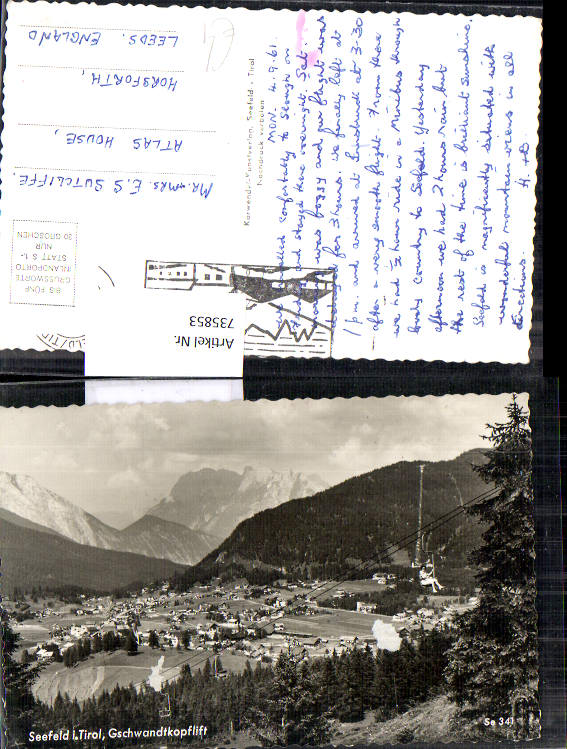 MON. 4.9.61.
comfortably to Slough on
and stayed there overnight. Sat.
was foggy and our flight was
for 3 hours. We finally left at
1 p.m. and arrived at Innsbruck at 3-30
after a very smooth flight. From there
we had a hour ride in a Minibus through
lovely country to Seefeld. Yesterday
afternoon we had 2 hours rain but
the rest of the time is brilliant sunshine.
Seefeld is magnificently situated with
wonderful mountain views in all
directions.
Karwendel-Kunstverlag, Seefeld - Tirol
Nachdruck verboten
BIS FÜNF
GRUSSWORTE
INLANDPORTO
STATT S 1.-
NUR
30 GROSCHEN
MR. & MRS. E.S SUTCLIFFE,
ATLAS HOUSE,
HORSFORTH,
LEEDS. ENGLAND
Artikel Nr.
735853
Seefeld i.Tirol, Gschwandtkopflift
Se 341